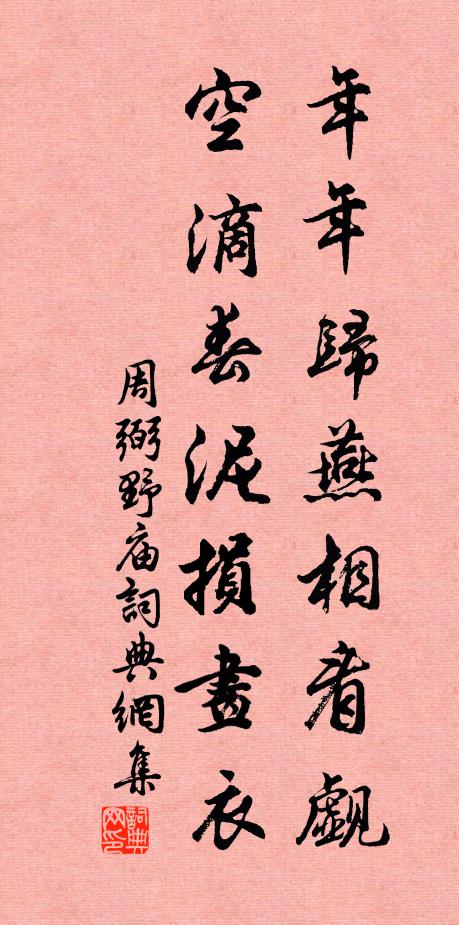 年年歸燕相看覷
空滴春泥損畫衣
周弼野庙詞典網集
詞典网印